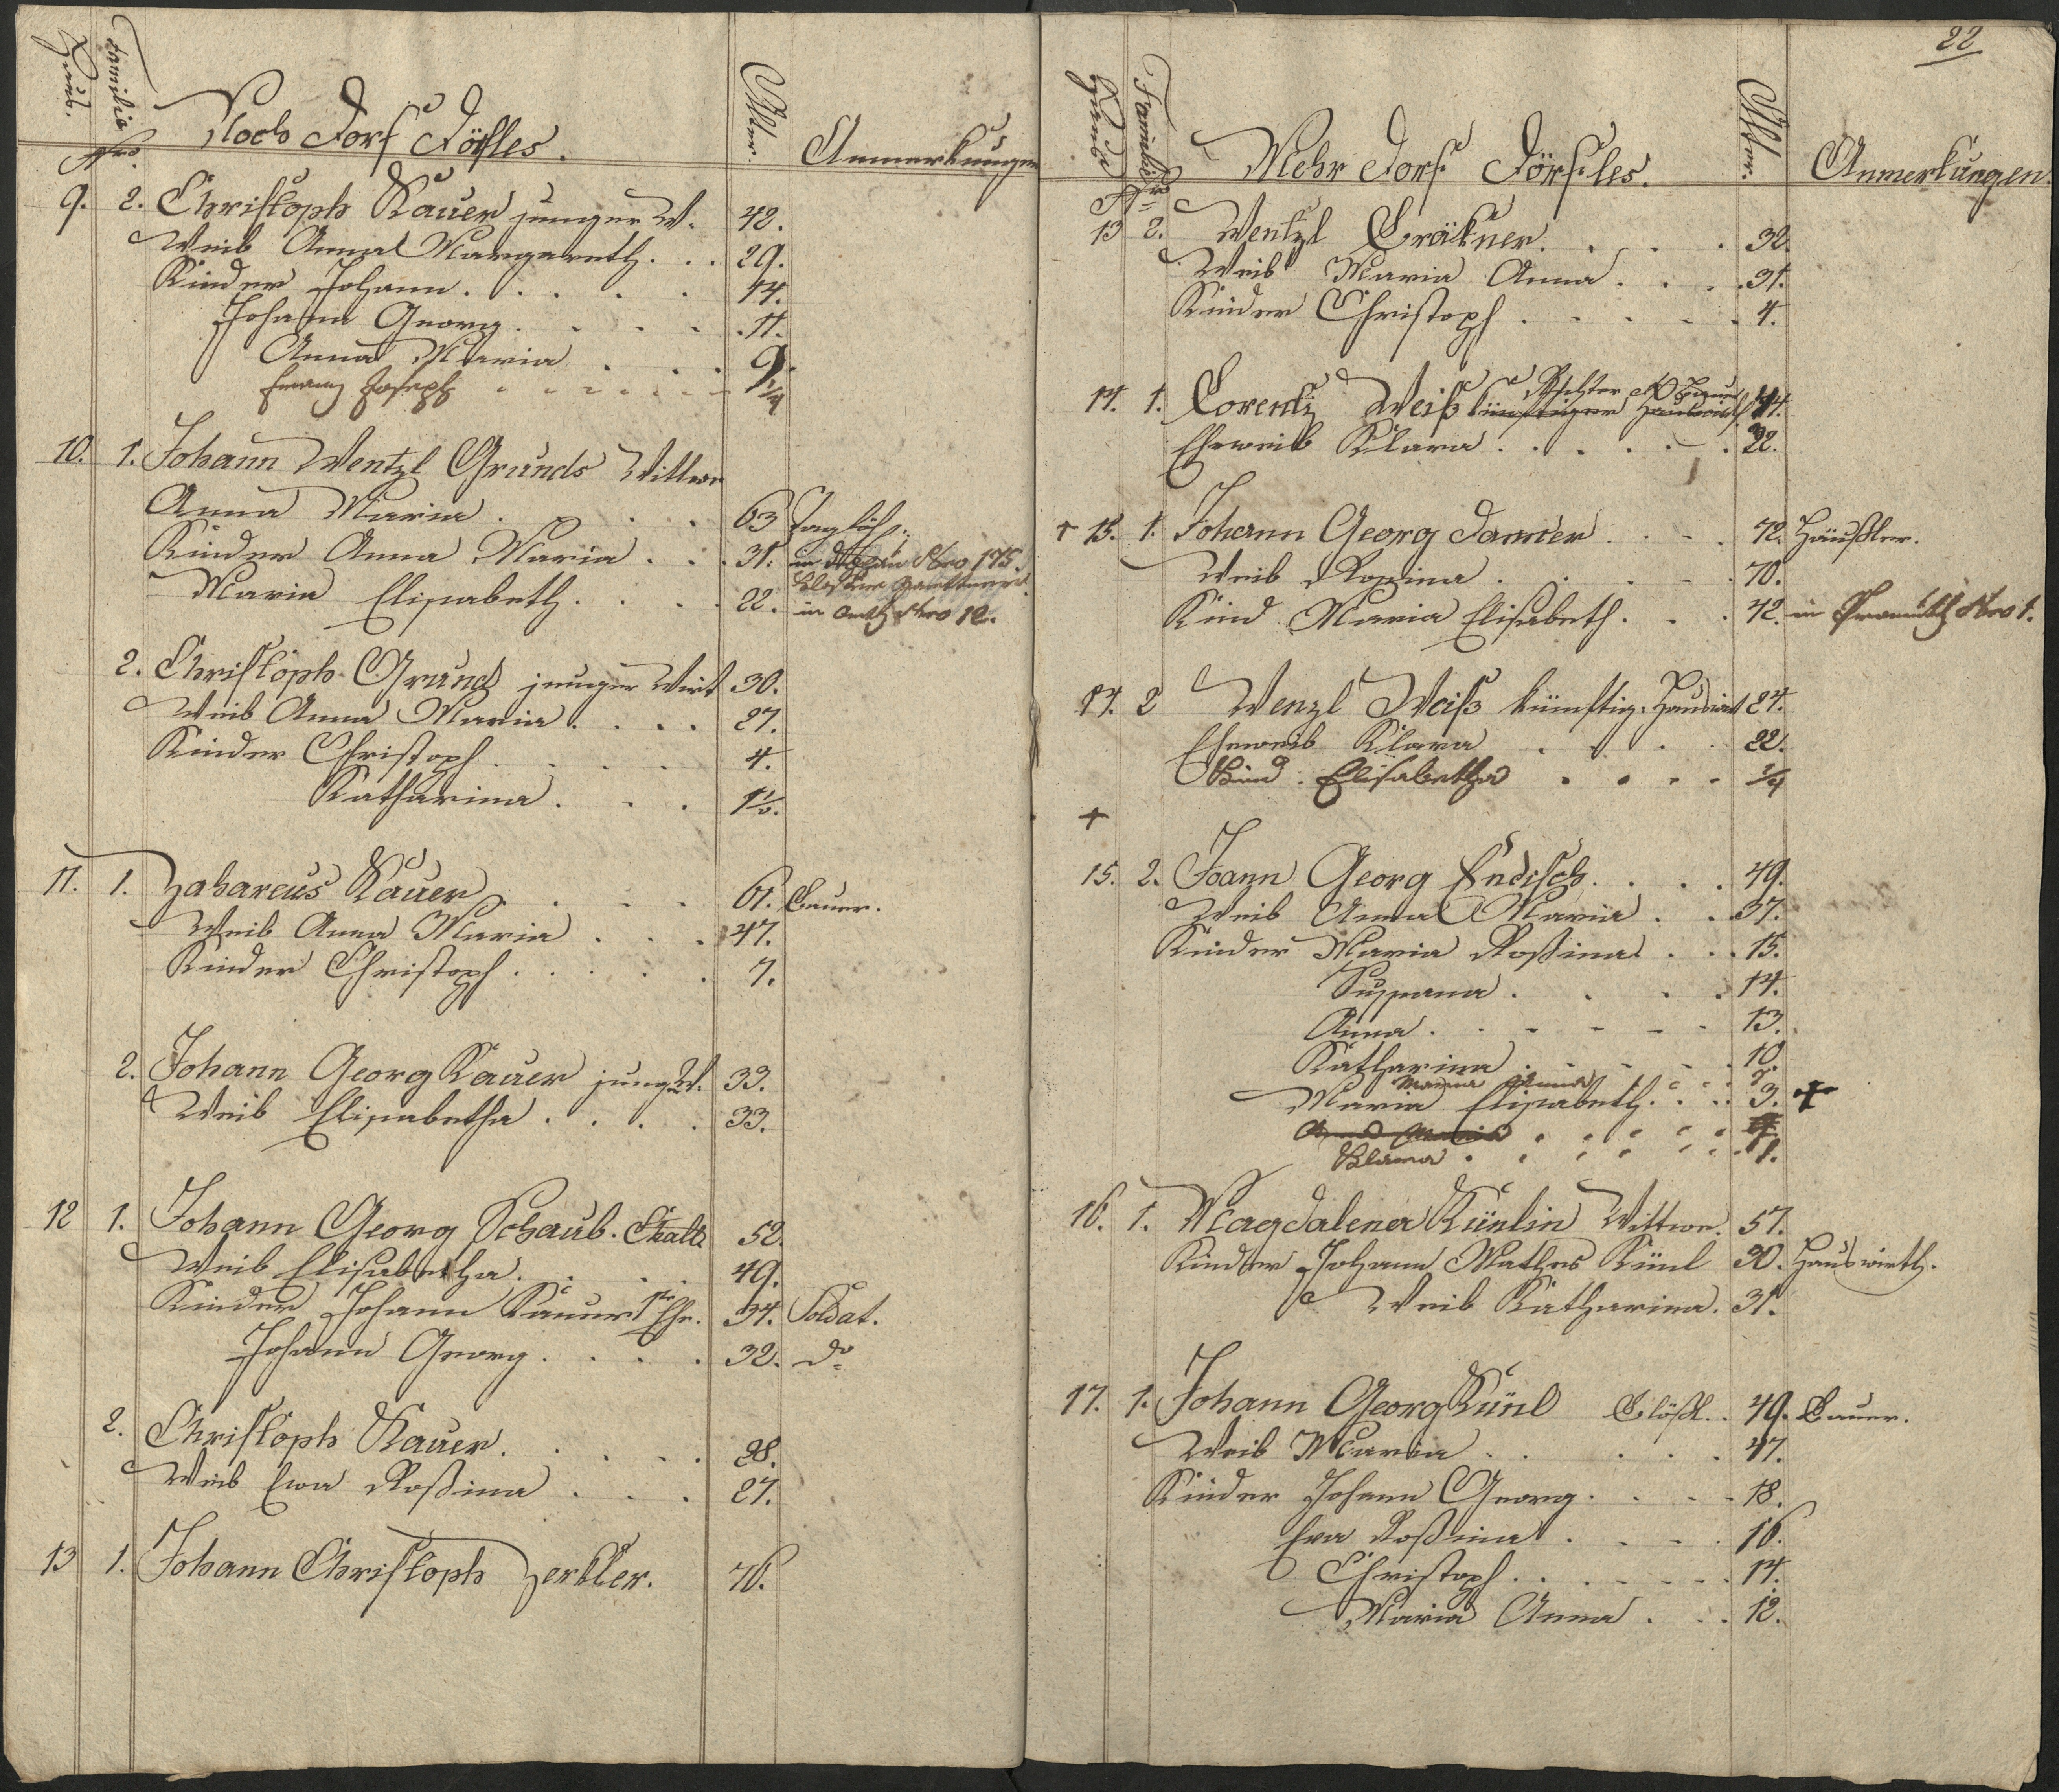 Hauß.
Familie
Nro.
Noch Dorf Dörfles.
Alter.
Anmerkungen
9. 2. Christoph Kauer junger W. 42.
Weib Anna Margareth. . . 29.
Kinder Johann. . . . . 14.
Johann Georg. . . . . 11.
Anna Maria . . . . 9.
Franz Joseph . . . . . . 1/4
10. 1. Johann Wentzl Grunds Wittwe
Anna Maria . . . . . 63
Kinder Anna Maria . . . 31. in Nro 175.
Maria Elisabeth. . . . 22. in Nro 12.
2. Christoph Grund junger Wirt 30.
Weib Anna Maria . . . . 27.
Kinder Christoph . . . . 4.
Katharina . . . 1 1/2.
11. 1. Zahareus Kauer . . . . 61. Bauer.
Weib Anna Maria . . . 47.
Kinder Christoph . . . . . 7.
2. Johann Georg Kauer jung W. 33.
Weib Elisabetha . . . . 33.
12 1. Johann Georg Schaub. 52.
Weib Elisabetha . . . . 49.
Kinder Johann Kauer 1te Ehe. 34. Soldat.
Johann Georg . . . . 32. do
2. Christoph Kauer. . . . . 28.
Weib Eva Roßina . . . 27.
13 1. Johann Christoph Zerkler. 76.
22
Hauß
Familie
Nro
Mehr Dorf Dörfles.
Alter.
Anmerkungen.
13 2. Wentzl Gräkner. . . . . 32.
Weib Maria Anna . . . . 31.
Kinder Christoph . . . . . 4.
Richter
14. 1. Lorentz Weiß künftiger Hauswirth 44.
Eheweib Klara . . . . . . 22.
+ 15. 1. Johann Georg Danner . . . 72. Häußler.
Weib Rosina . . . . . 70.
Kind Maria Elisabeth . . . 42. in Nro 1.
14. 2 Wenzl Weiß künftig. Hauswirt 24.
Eheweib Klara . . . . 22.
Kind. Elisabetha . . . . 1/4
+
15. 2. Joann Georg Endisch. . . . 49.
Weib Anna Maria . . . 37.
Kinder Maria Roßina . . . 15.
Susanna . . . . 14.
Anna . . . . . . 13.
Katharina . . . . . 10.
Maria Anna . . . . 7.
Maria Elisabeth. . . . 3. +
Anna Maria . . . . . .
Klara . . . . . . 1.
16. 1. Magdalena Künlin Wittwe. 57.
Kinder Johann Mathes Künl 30. Hauswirth.
Weib Katharina. 31.
17. 1. Johann Georg Künl . . 49. Bauer.
Weib Maria . . . . . 47.
Kinder Johann Georg . . . . 18.
Eva Roßina . . . . 16.
Christoph . . . . . . 14.
Maria Anna . . . 12.